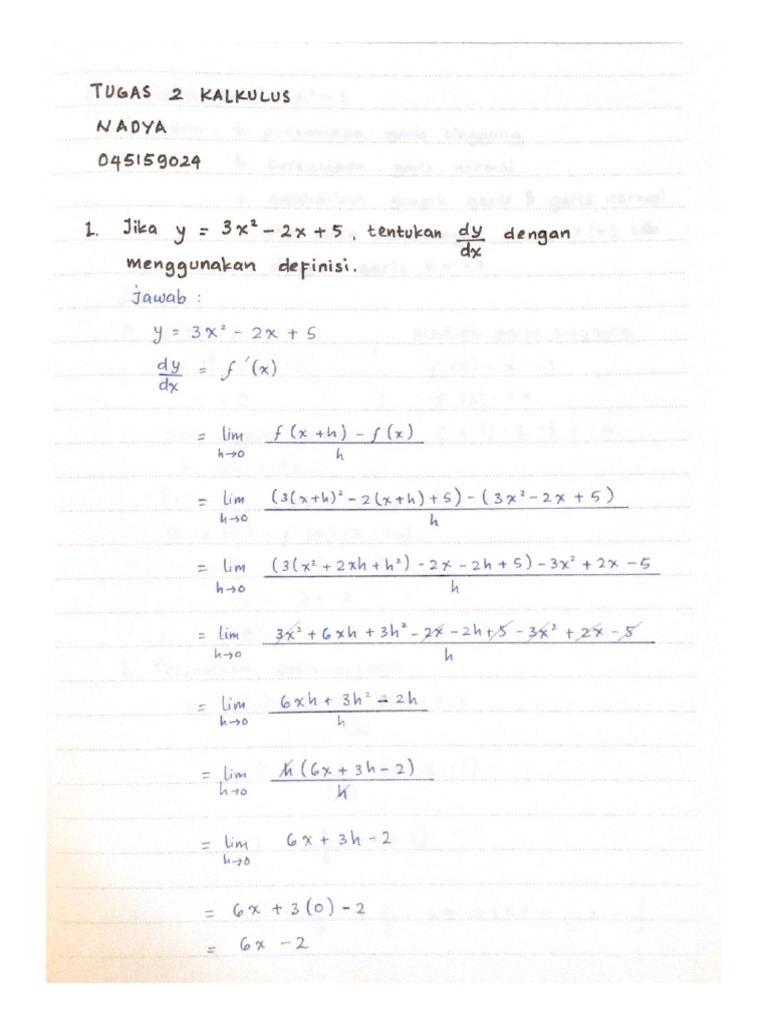 TUGAS 2 KALKULUS
NADYA
045159024
1. Jika y = 3x² - 2x + 5, tentukan dy/dx dengan
menggunakan definisi.
jawab :
y = 3x² - 2x + 5
dy/dx = f'(x)
= lim h→0 f(x+h) - f(x) / h
= lim h→0 (3(x+h)² - 2(x+h) + 5) - (3x² - 2x + 5) / h
= lim h→0 (3(x² + 2xh + h²) - 2x - 2h + 5) - 3x² + 2x - 5 / h
= lim h→0 3x² + 6xh + 3h² - 2x - 2h + 5 - 3x² + 2x - 5 / h
= lim h→0 6xh + 3h² - 2h / h
= lim h→0 h(6x + 3h - 2) / h
= lim h→0 6x + 3h - 2
= 6x + 3(0) - 2
= 6x - 2